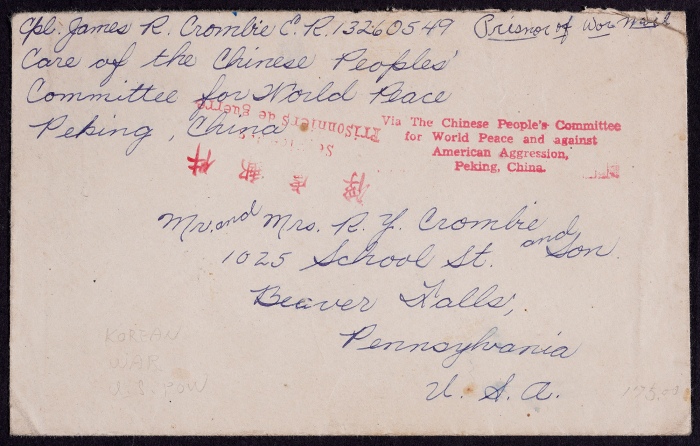 Cpl. James R. Crombie E.R. 13260549 Prisnor of War Mail
Care of the Chinese Peoples'
Committee for World Peace
Peking, China
Prisonniers de guerre
Via The Chinese People's Committee
for World Peace and against
American Aggression,
Peking, China.
Mr. and Mrs. R. Y. Crombie
and Son
1025 School St.
Beaver Falls,
Pennsylvania
U. S. A.
KOREAN
WAR
U.S. POW
175.00